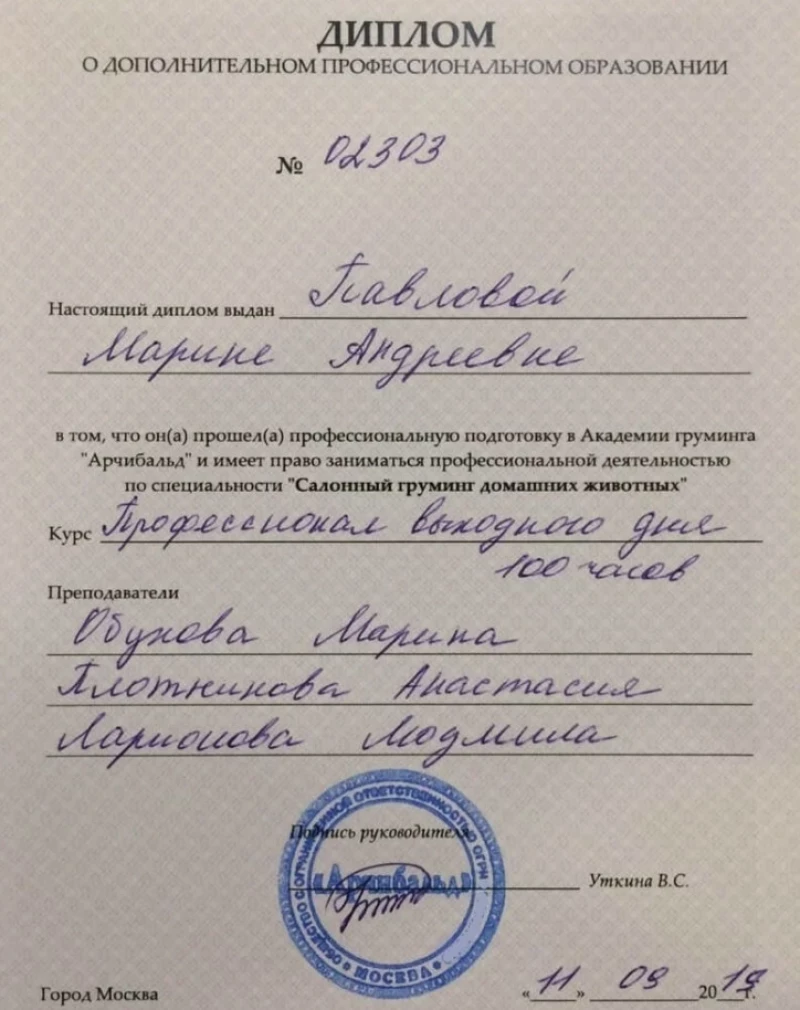 ДИПЛОМ
О ДОПОЛНИТЕЛЬНОМ ПРОФЕССИОНАЛЬНОМ ОБРАЗОВАНИИ
№ 02303
Настоящий диплом выдан Павловой
Марине Андреевне
в том, что он(а) прошел(а) профессиональную подготовку в Академии груминга
"Арчибальд" и имеет право заниматься профессиональной деятельностью
по специальности "Салонный груминг домашних животных"
Курс Профессионал выходного дня
100 часов
Преподаватели
Обухова Марина
Плотникова Анастасия
Ларионова Людмила
Подпись руководителя
ОБЩЕСТВО С ОГРАНИЧЕННОЙ ОТВЕТСТВЕННОСТЬЮ ОГРН
«Арчибальд»
МОСКВА
Уткина В.С.
Город Москва «11» 09 2019г.